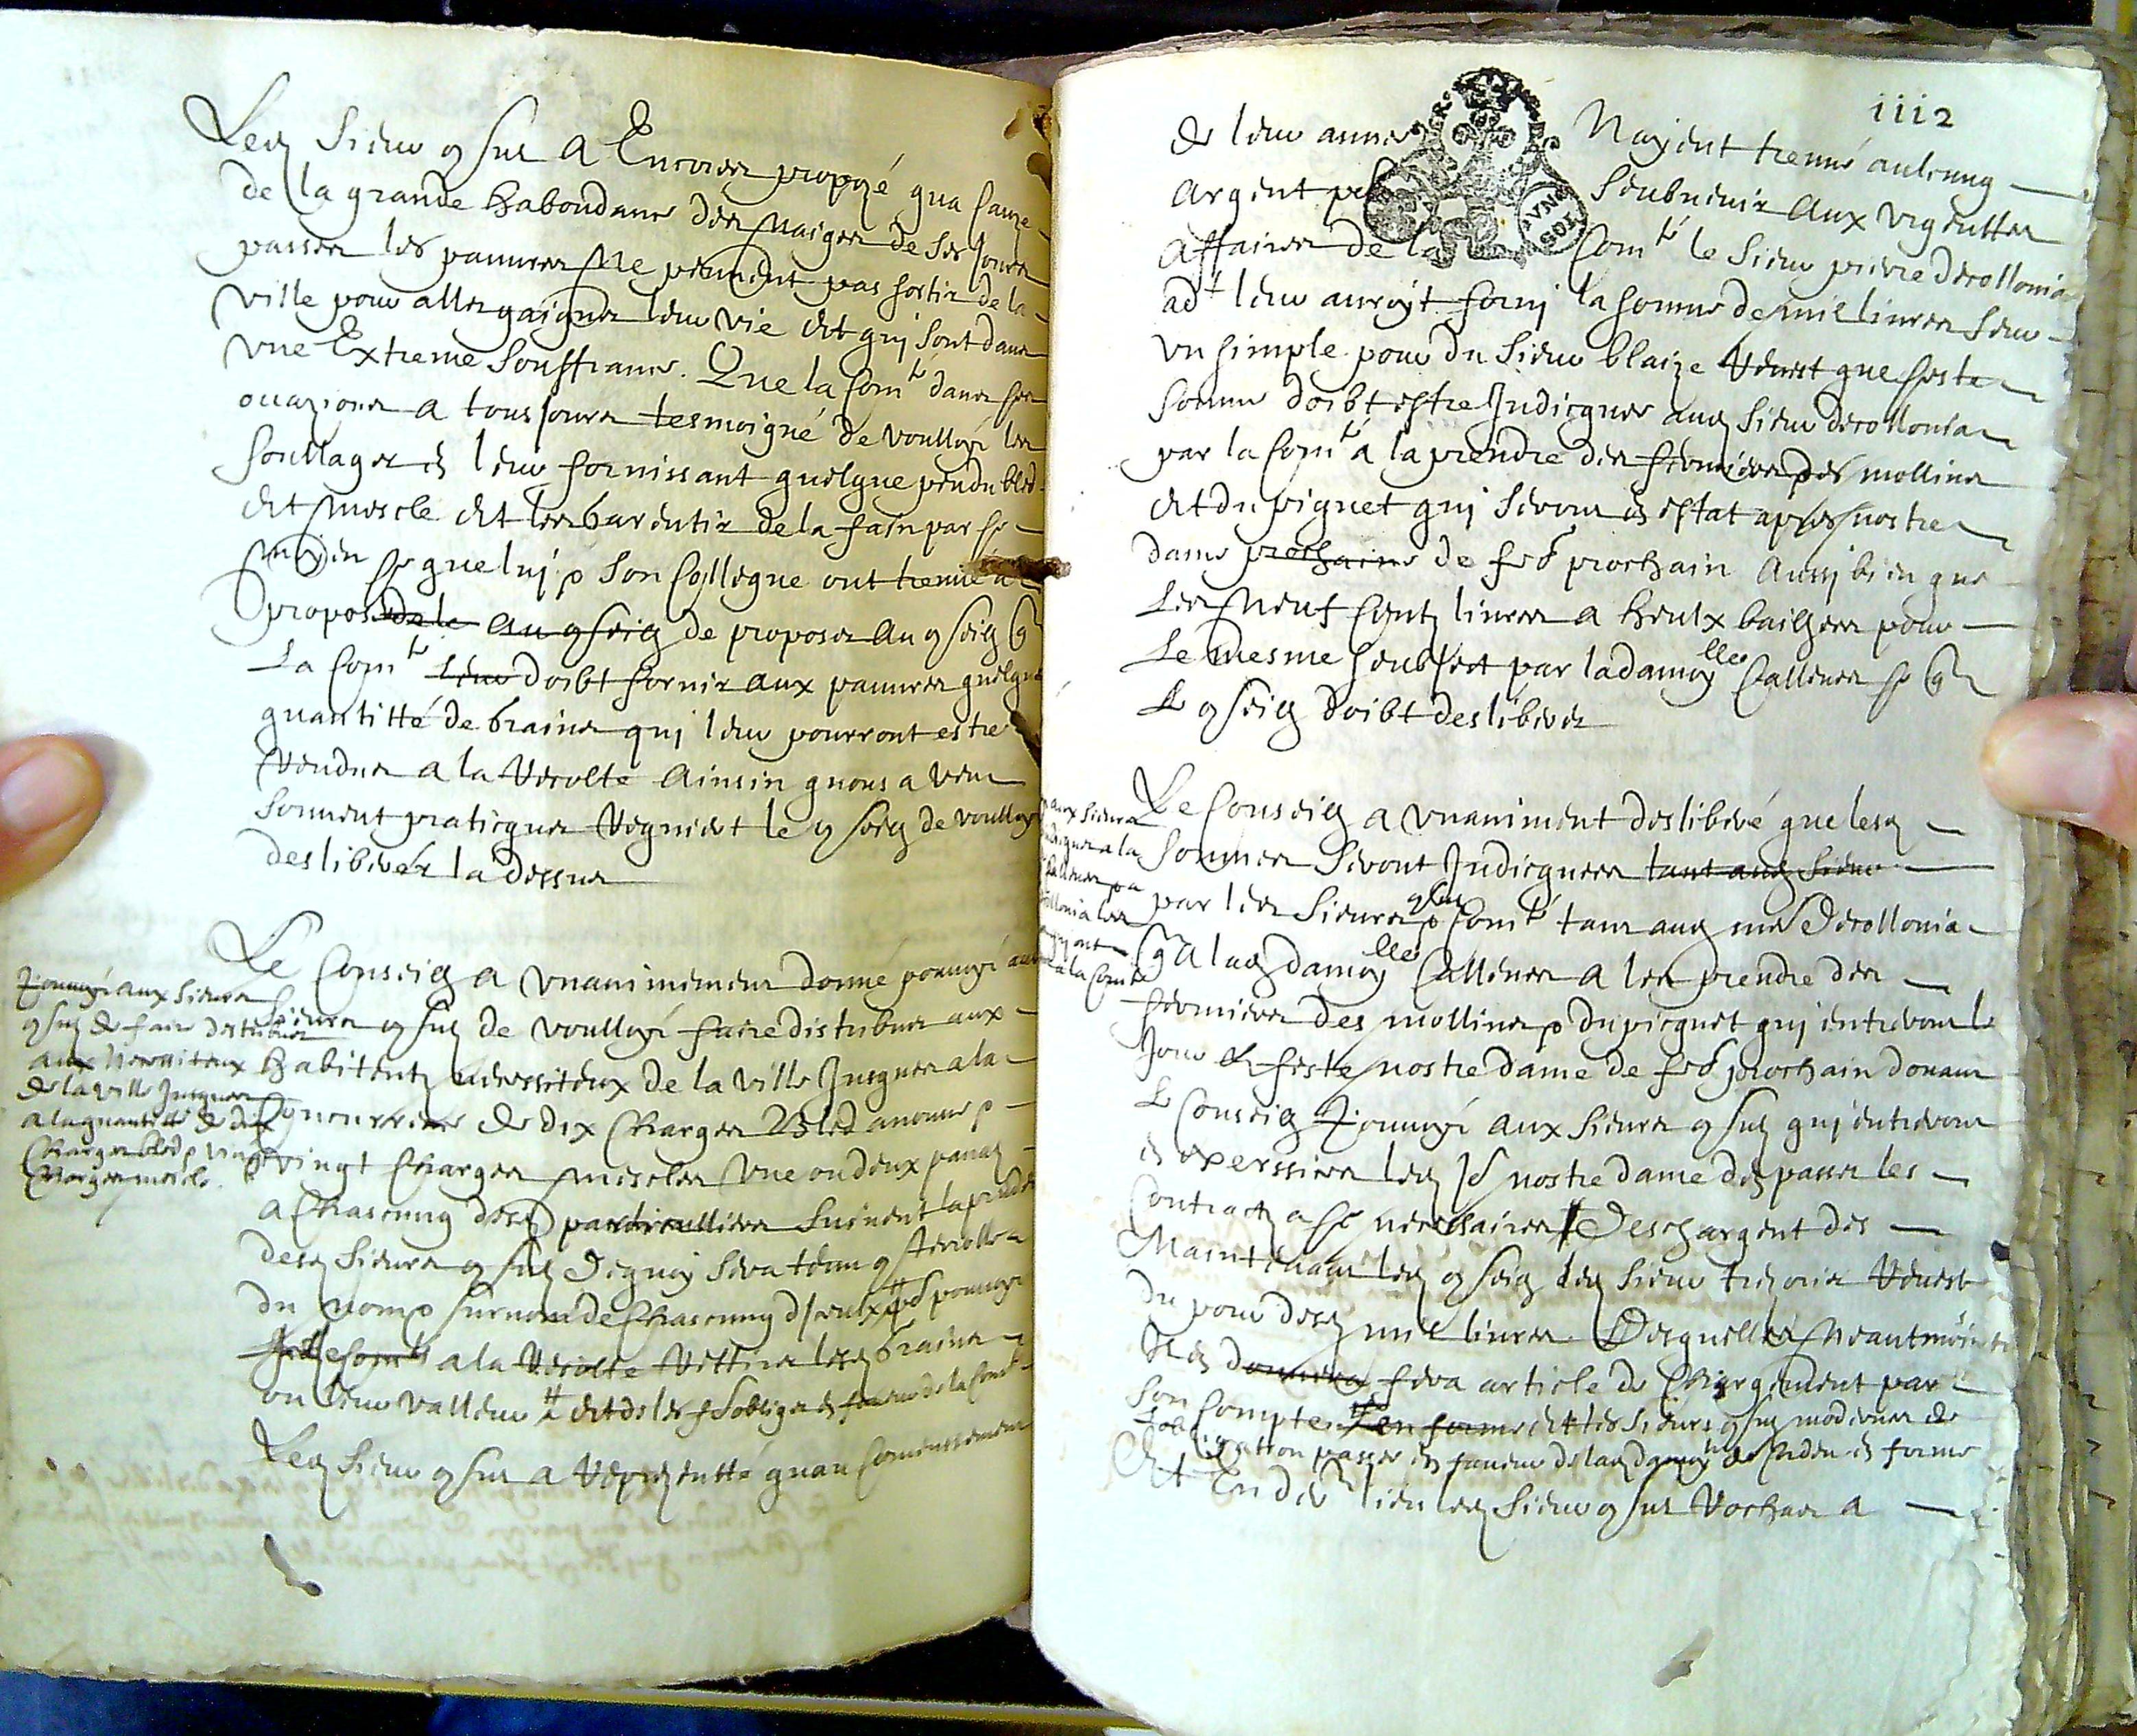 Led sieur consul a Encores propozé qua cauze
de la grande habondance des naiges de ces jours
passes les pauvres ne peuvent pas sortir de la
ville pour aller gaigner leur vie et qui sont dans
une Extreme souffrance. Que la Comté dans ses
ocuazions a tousjours tesmoigné de voulloyr les
soullager en leur fornissant quelque peu du bled
et mescle et les garentir de la fain par ce
moyen ce que luj & son collegue ont treuvé a
propos de le au conseig de proposer au conseig sy
La Comté leur doibt fornir aux pauvres quelque
quantitté de grains quj leur pourront estre
rendus a la recolte ainsin quons a veu
souvent praticquer requiert le conseig de voulloyr
deslibérer la dessus
Le Conseig a unanimement donné pouvoyr aux
sieurs consulz de voulloyr faire distribuer aux
habitentz necessiteux de la ville jusques a la
concurrance de dix charges Bled anoune &
vingt charges mescles une ou deux panaz
a chascung desd particulliers suivent la prudence
desd sieurs consulz Dequoy sera tenu conterolle
du nom & surnom de chascung d'iceulx pouvoyr
a la recolte retirer lesd grains
ou leur valleur et de les f obliger en faveur de la Comté
Led sieur consul a represientté quau commensement
pouvoyr aux sieurs
consulz de faire distribuer
aux necessiteux
de la ville jusques
a la quantitté de dix
charges bled & vingt
charges mescle
1112
de leur année Nayent treuvé aulcung
argent po soubvenir aux urgenttes
affaires de la Comté le sieur pierre decollonia
adt leur auroyt forny la somme de mil livres sur
un simple pour du sieur blaize Veuest que ceste
somme doibt estre jndicquee aud sieur decollonia
par la Comté a la prendre des fermiers des mollins
et du picquet quj seront en estat apres nostre
dame prochaine de feb prochain aussj bien que
Les neuf centz livres a heulx bailhees pour
Le mesme soubject par la damoylle Callenes sy
Le conseig doibt deslibérer
Le Conseig a unaniment deslibéré que lesd
sommes seront jndicquees tant aud sieur
par les sieurs consulz & Comté tant aud me Decollonia
que a lad damoylle Callenes a les prendre des
fermiers des mollins & du picquet quj entreront le
jour & feste nostre dame de feb prochain donant
Le Conseig pouvoyr aux sieurs consulz quj entreront
en exerssice led jor nostre dame den passer les
contractz a ce necessaires Deschargent des
Maintenant led conseig led sieur trezorier Veuest
du pour desd mil livres Desquelles Neantmoins
sera article de chargement par
son compte en forme et les sieurs consulz modernes de
lobligation passee en faveur de lad damoylle
Et En der lieu led sieur consul Rochas a
aux sieurs
jndiquer a la
Callenes &
Decollonia les
quj ont
a la Comté
PVNG
SOL